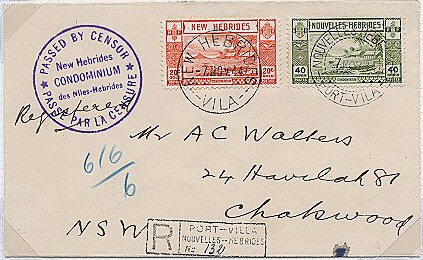 PASSED BY CENSOR
New Hebrides
CONDOMINIUM
des Nlles-Hebrides
PASSE PAR LA CENSURE
NEW HEBRIDES
20c
20c
NEW HEBRIDES
VILA
NOUVELLES-HEBRIDES
40
40
CONDOMINIUM
PORT-VILA
Registered
Mr A C Walters
24 Havilah St
Chatswood
NSW
616
6
R
PORT-VILA
NOUVELLES-HEBRIDES
No